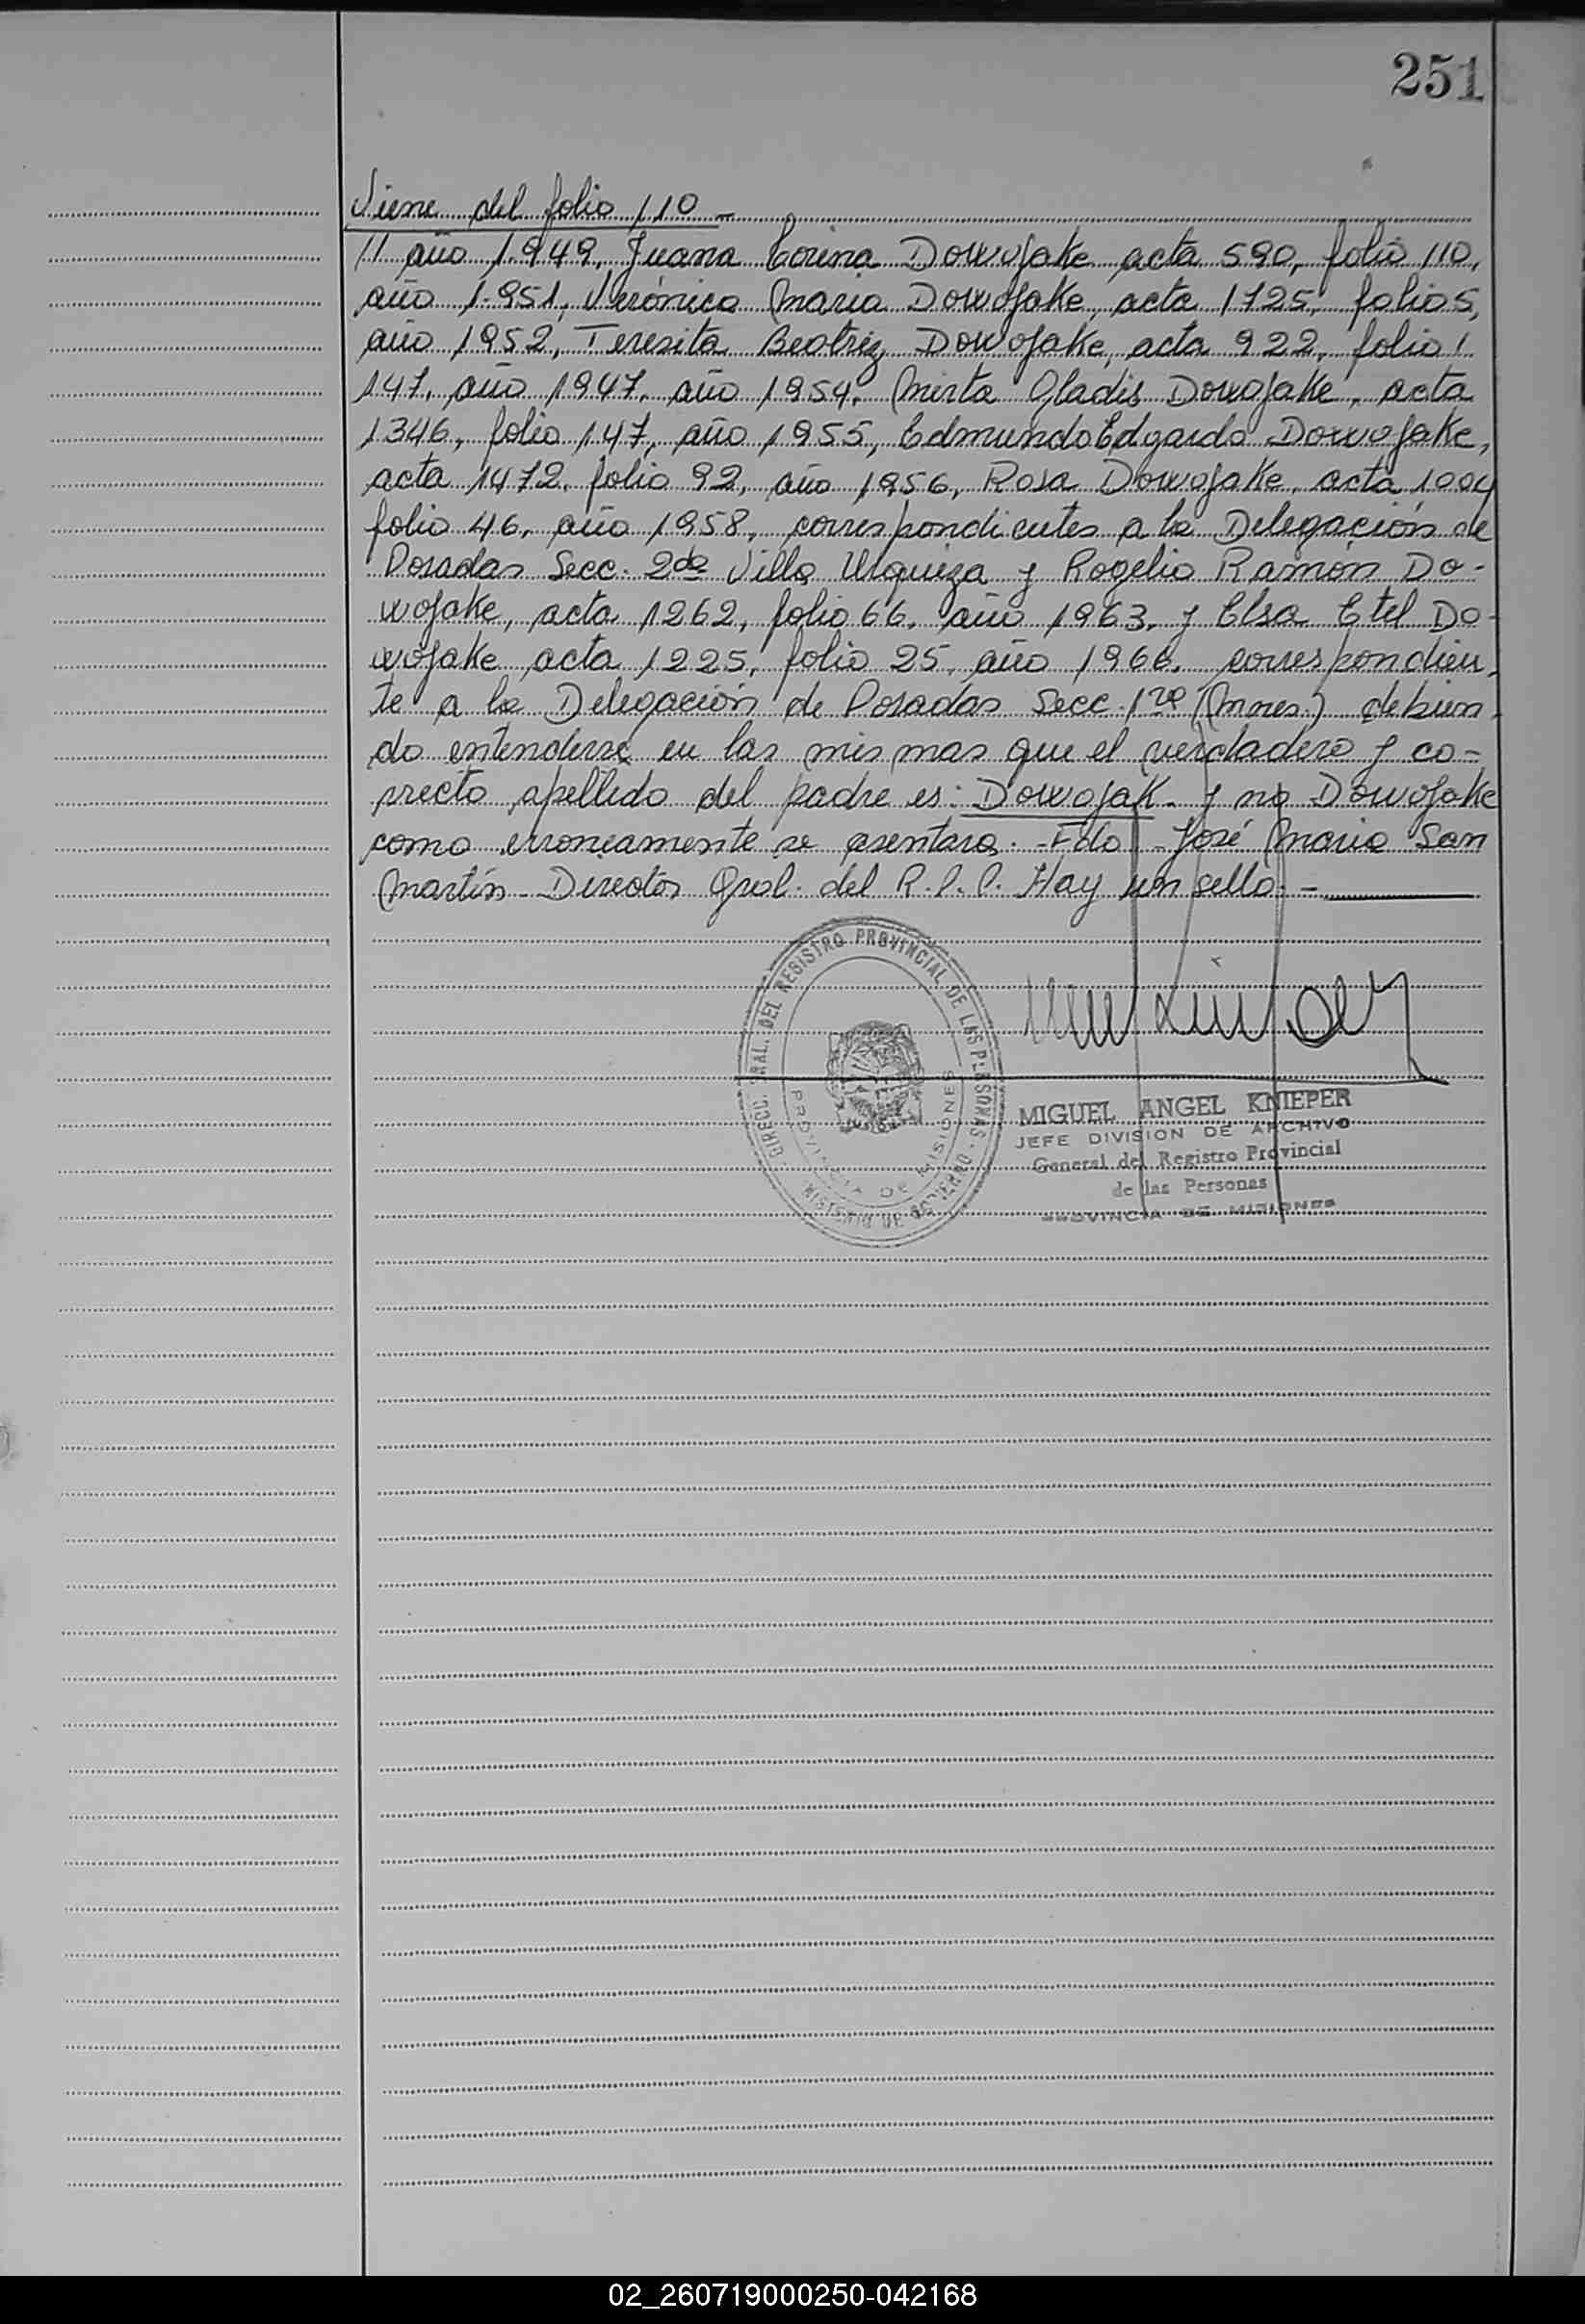 251
Viene del folio 110 -
11 año 1.949, Juana Corina Dowojake acta 590, folio 110,
año 1.951, Verónica Maria Dowojake, acta 1725, folio 5,
año 1952, Teresita Beatriz Dowojake, acta 922, folio 1
147, año 1947, año 1954, Mirta Gladis Dowojake, acta
1346, folio 147, año 1955, Edmundo Edgardo Dowojake,
acta 1472, folio 92, año 1956, Rosa Dowojake, acta 1004
folio 46, año 1958, correspondientes a la Delegación de
Posadas Secc. 2da Villa Urquiza y Rogelio Ramón Do-
wojake, acta 1262, folio 66, año 1963, y Elsa Etel Do-
wojake acta 1225, folio 25, año 1966, correspondien-
te a la Delegación de Posadas Secc. 1ra (Mnes.) debien-
do entenderse en las mismas que el verdadero y co-
rrecto apellido del padre es: Dowojak y no Dowojake
como erroneamente se asentara. - Fdo - José Maria San
Martín - Director Gral. del R.P.P. Hay un sello. -
DIRECC. GRAL. DEL REGISTRO PROVINCIAL DE LAS PERSONAS
MINISTERIO DE GOBIERNO
PROVINCIA DE MISIONES
MIGUEL ANGEL KNIEPER
JEFE DIVISION DE ARCHIVO
General del Registro Provincial
de las Personas
PROVINCIA DE MISIONES
02_260719000250-042168